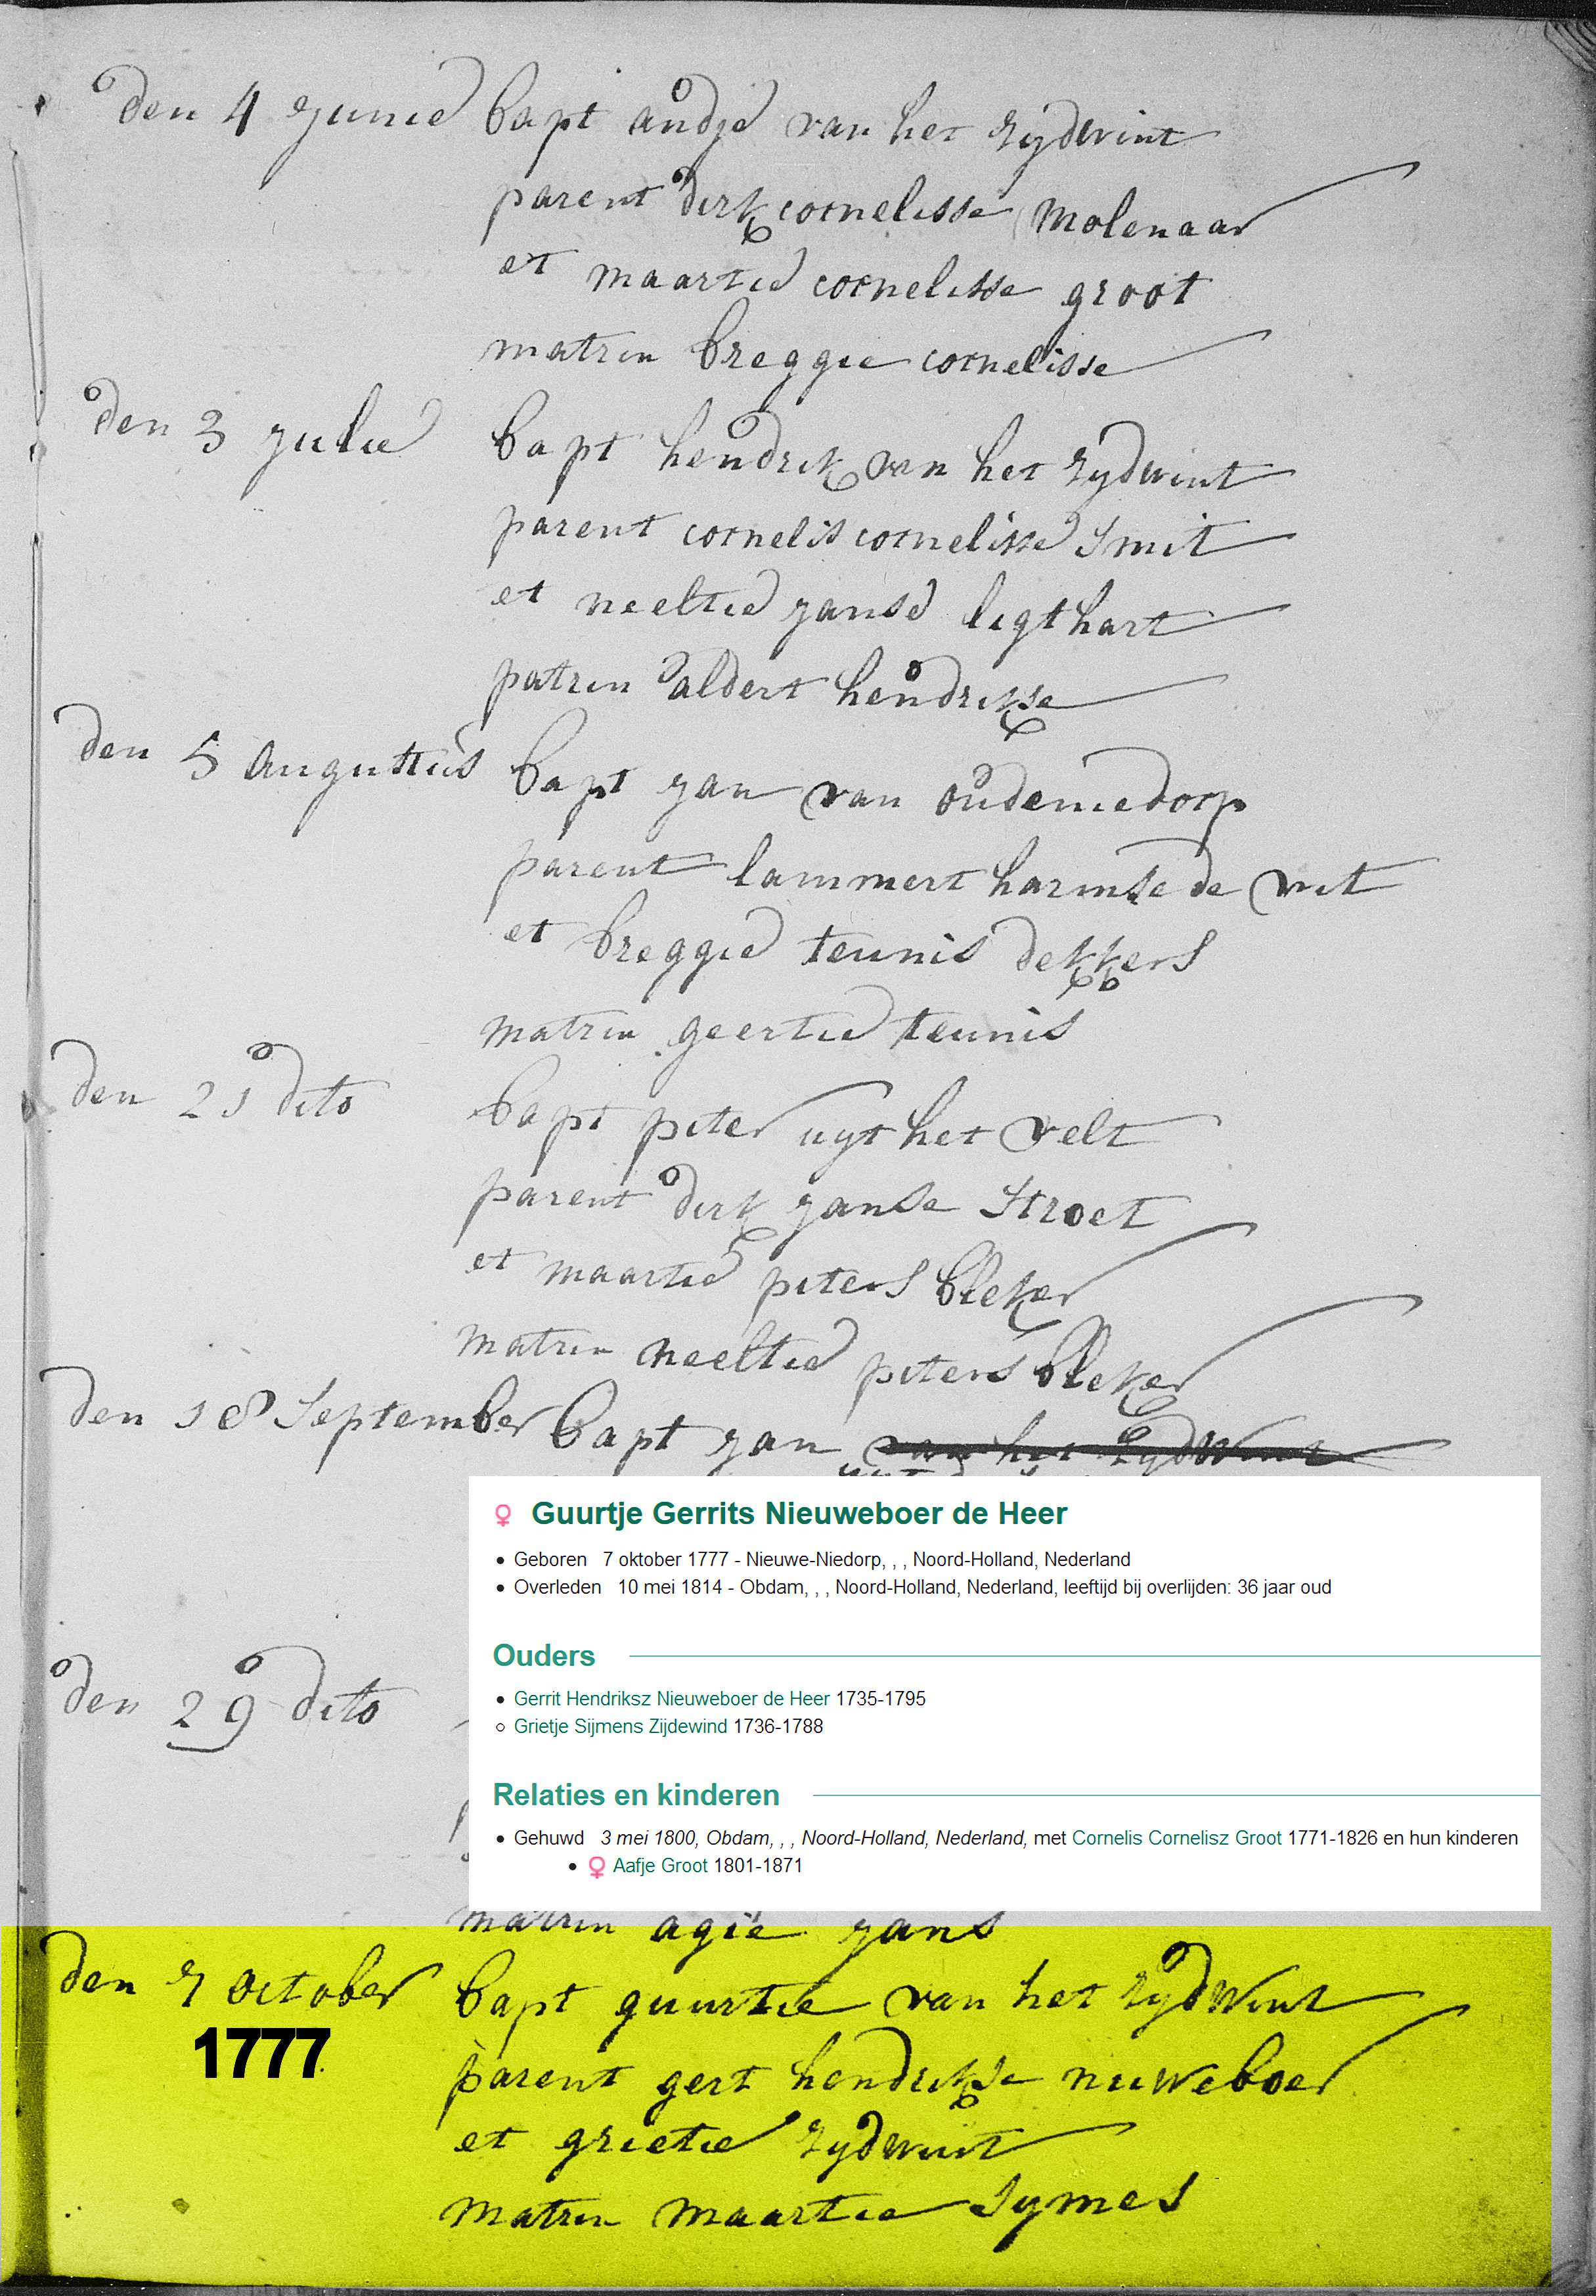 den 4 Junie bapt andje van het zydwint
parent dirk cornelisse Molenaar
et maartie cornelisse groot
matrin breggie cornelisse
den 3 Julie bapt hendrik van het zydwint
parent cornelis cornelisse Smit
et neeltie Janse ligthart
patrin aldert hendrikse
den 5 Augustus bapt Jan van oudeniedorp
parent lammert harmse de wit
et breggie teunis dekkers
matrin geertie teunis
den 21 dito bapt piter uyt het velt
parent dirk Janse Stroet
et maartie piters bleker
matrin neeltie piters bleker
den 18 September bapt Jan van het zydwint
♀ Guurtje Gerrits Nieuweboer de Heer
• Geboren 7 oktober 1777 - Nieuwe-Niedorp, , , Noord-Holland, Nederland
• Overleden 10 mei 1814 - Obdam, , , Noord-Holland, Nederland, leeftijd bij overlijden: 36 jaar oud
Ouders
den 29 dito
• Gerrit Hendriksz Nieuweboer de Heer 1735-1795
○ Grietje Sijmens Zijdewind 1736-1788
Relaties en kinderen
• Gehuwd 3 mei 1800, Obdam, , , Noord-Holland, Nederland, met Cornelis Cornelisz Groot 1771-1826 en hun kinderen
• ♀ Aafje Groot 1801-1871
matrin agie Jans
den 7 October bapt guurtie van het zydwint
1777
parent gert hendrikse nieuweboer
et grietie zydwint
matrin maartie Symes